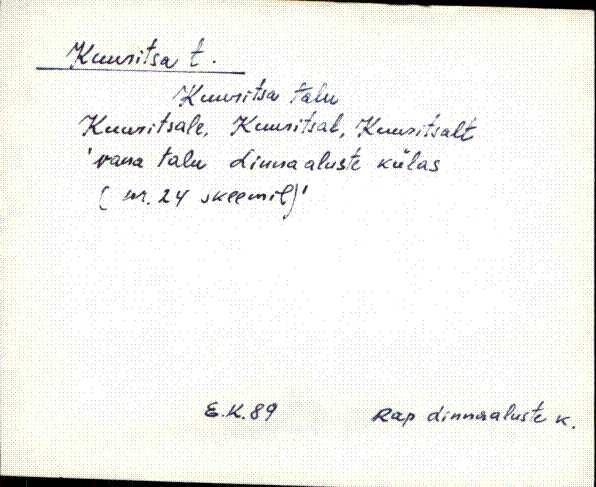 Kuusitsa t.
Kuusitsa talu
Kuusitsale, Kuusitsal, Kuusitsalt
'vana talu Linnaaluste külas
(nr. 24 skeemil)'
E.K.89
Rap Linnaaluste k.